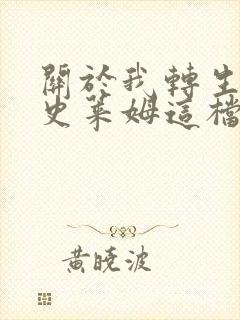 關於我轉生
史萊姆這檔
黃曉波